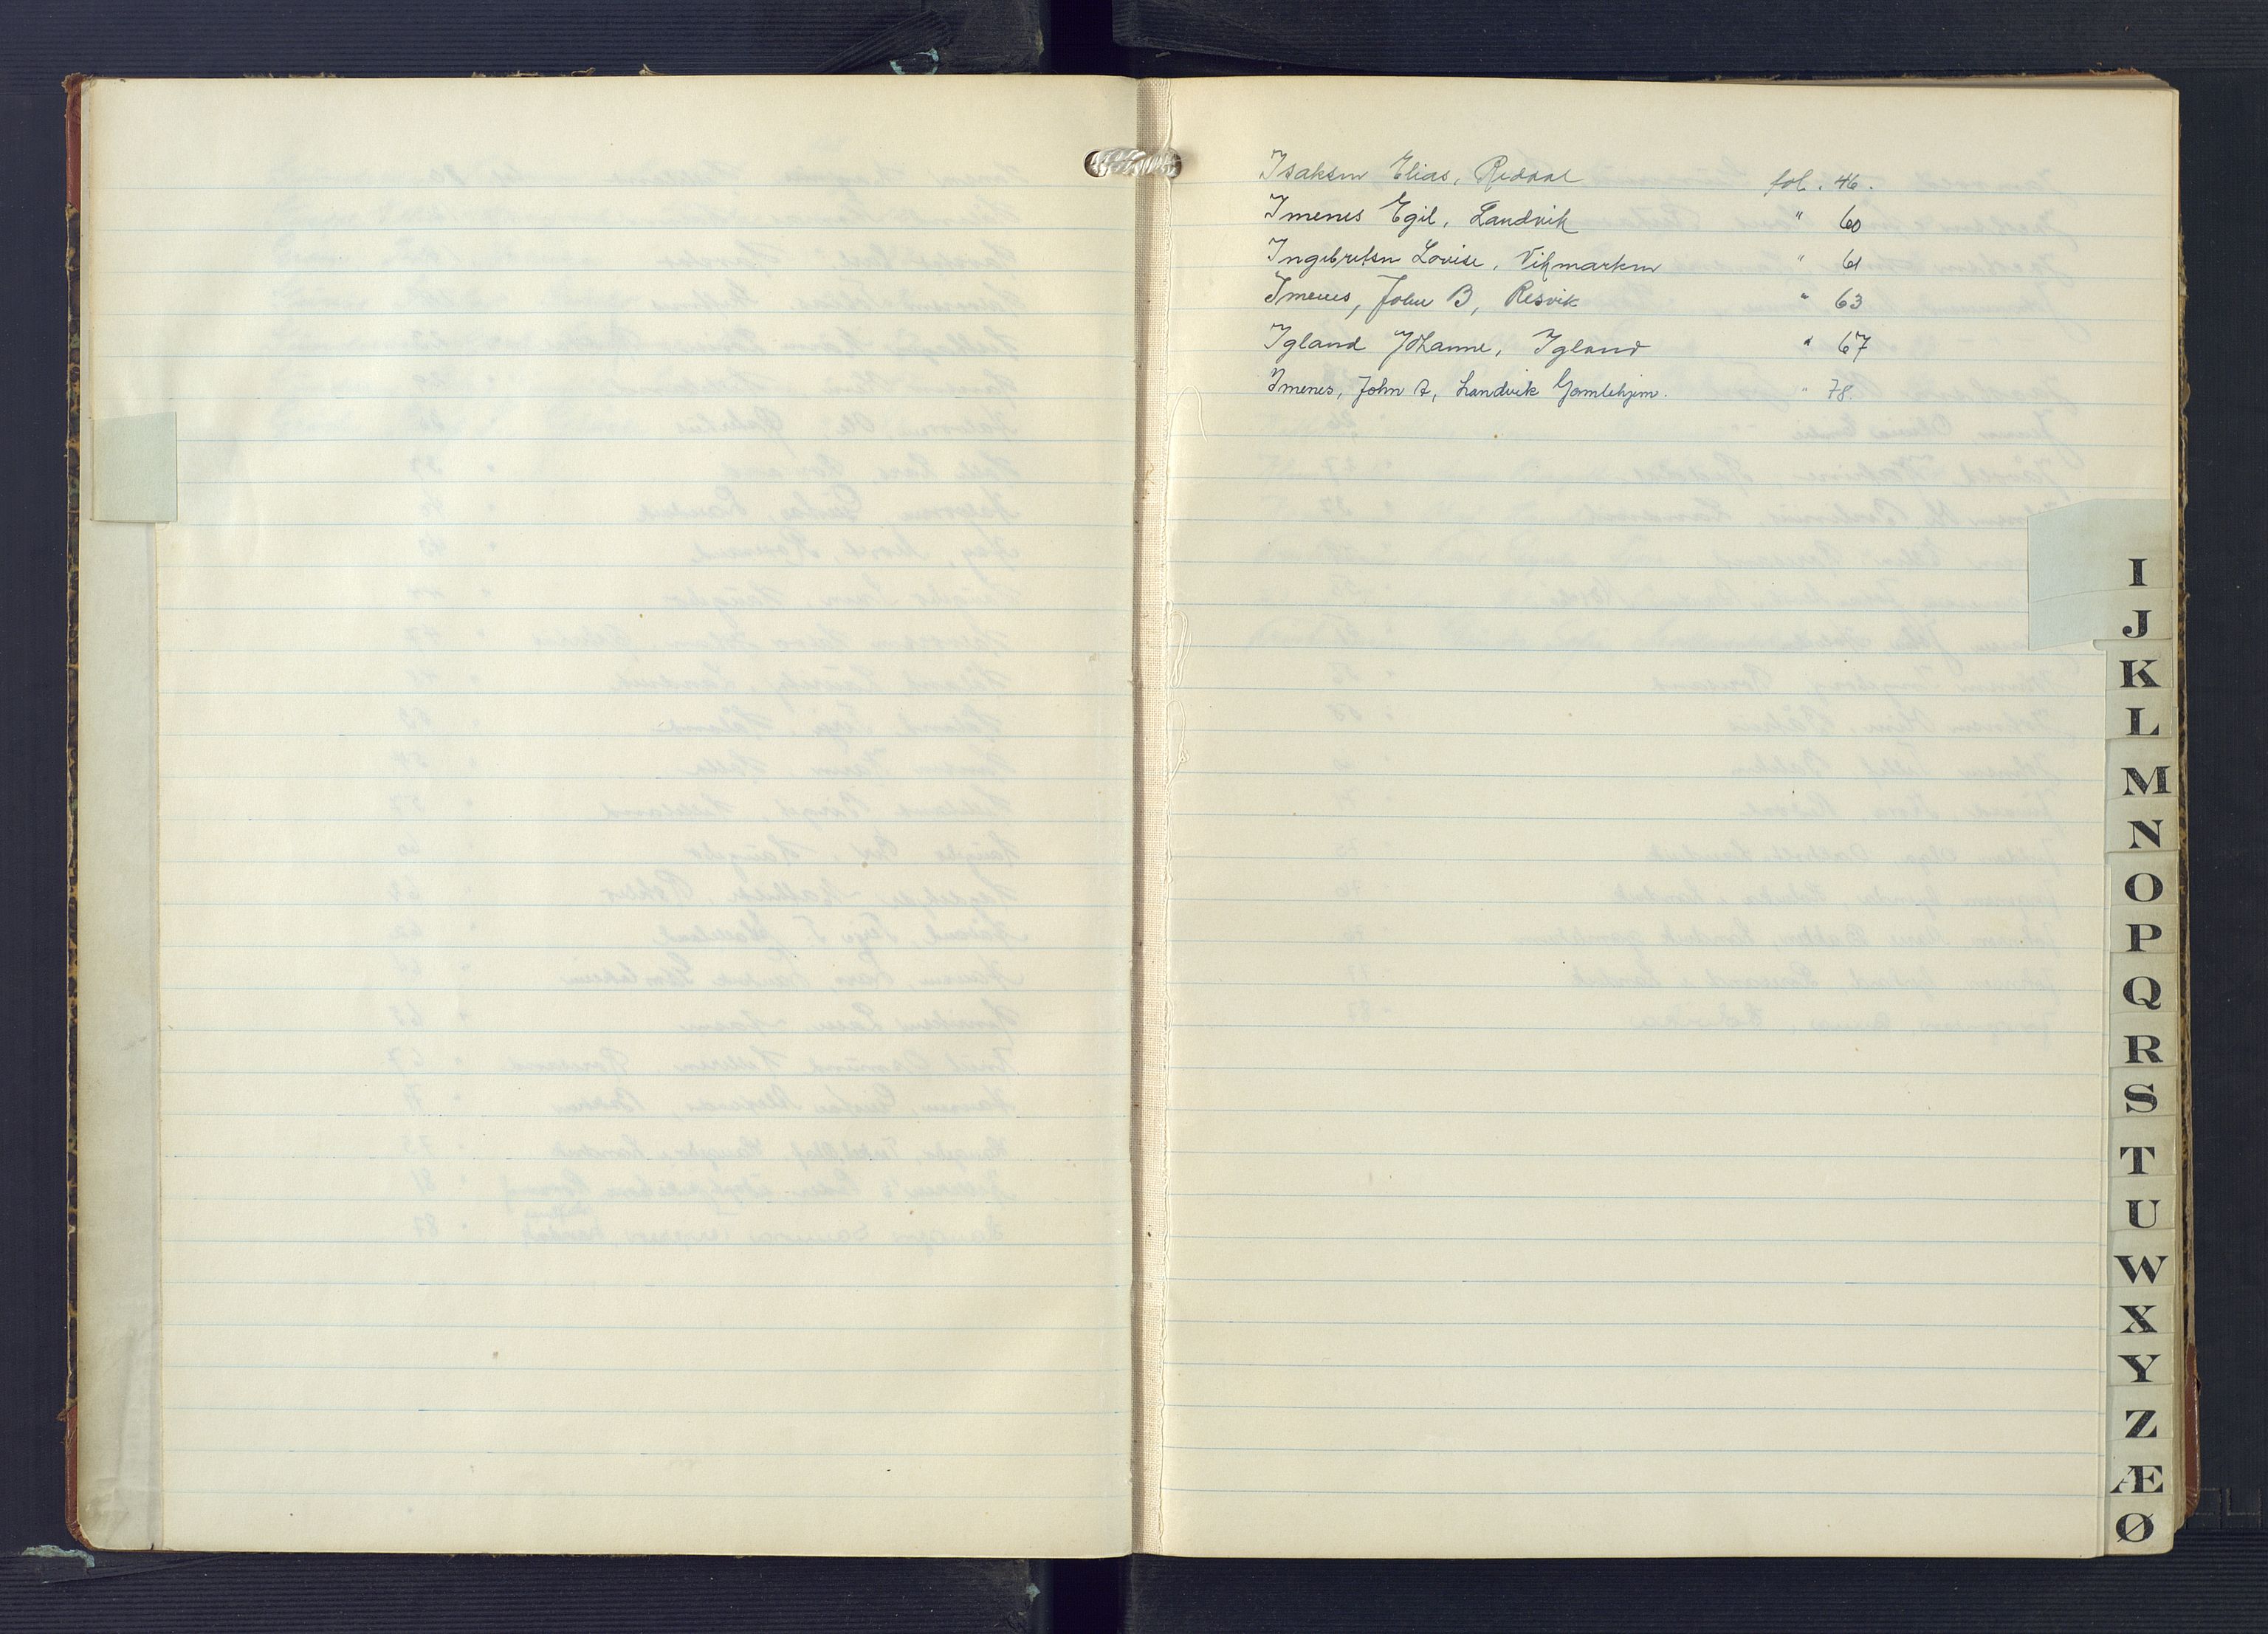 Isaksen Elias, Reddal fol. 46.
Imenes Egil, Landvik " 60
Ingebretsen Lovise, Vikmarken " 61
Imenes, John B, Resvik " 63
Igland Johanne, Igland " 67
Imenes, John A, Landvik Gamlehjem. " 78.
I
J
K
L
M
N
O
P
Q
R
S
T
U
W
X
Y
Z
Æ
Ø